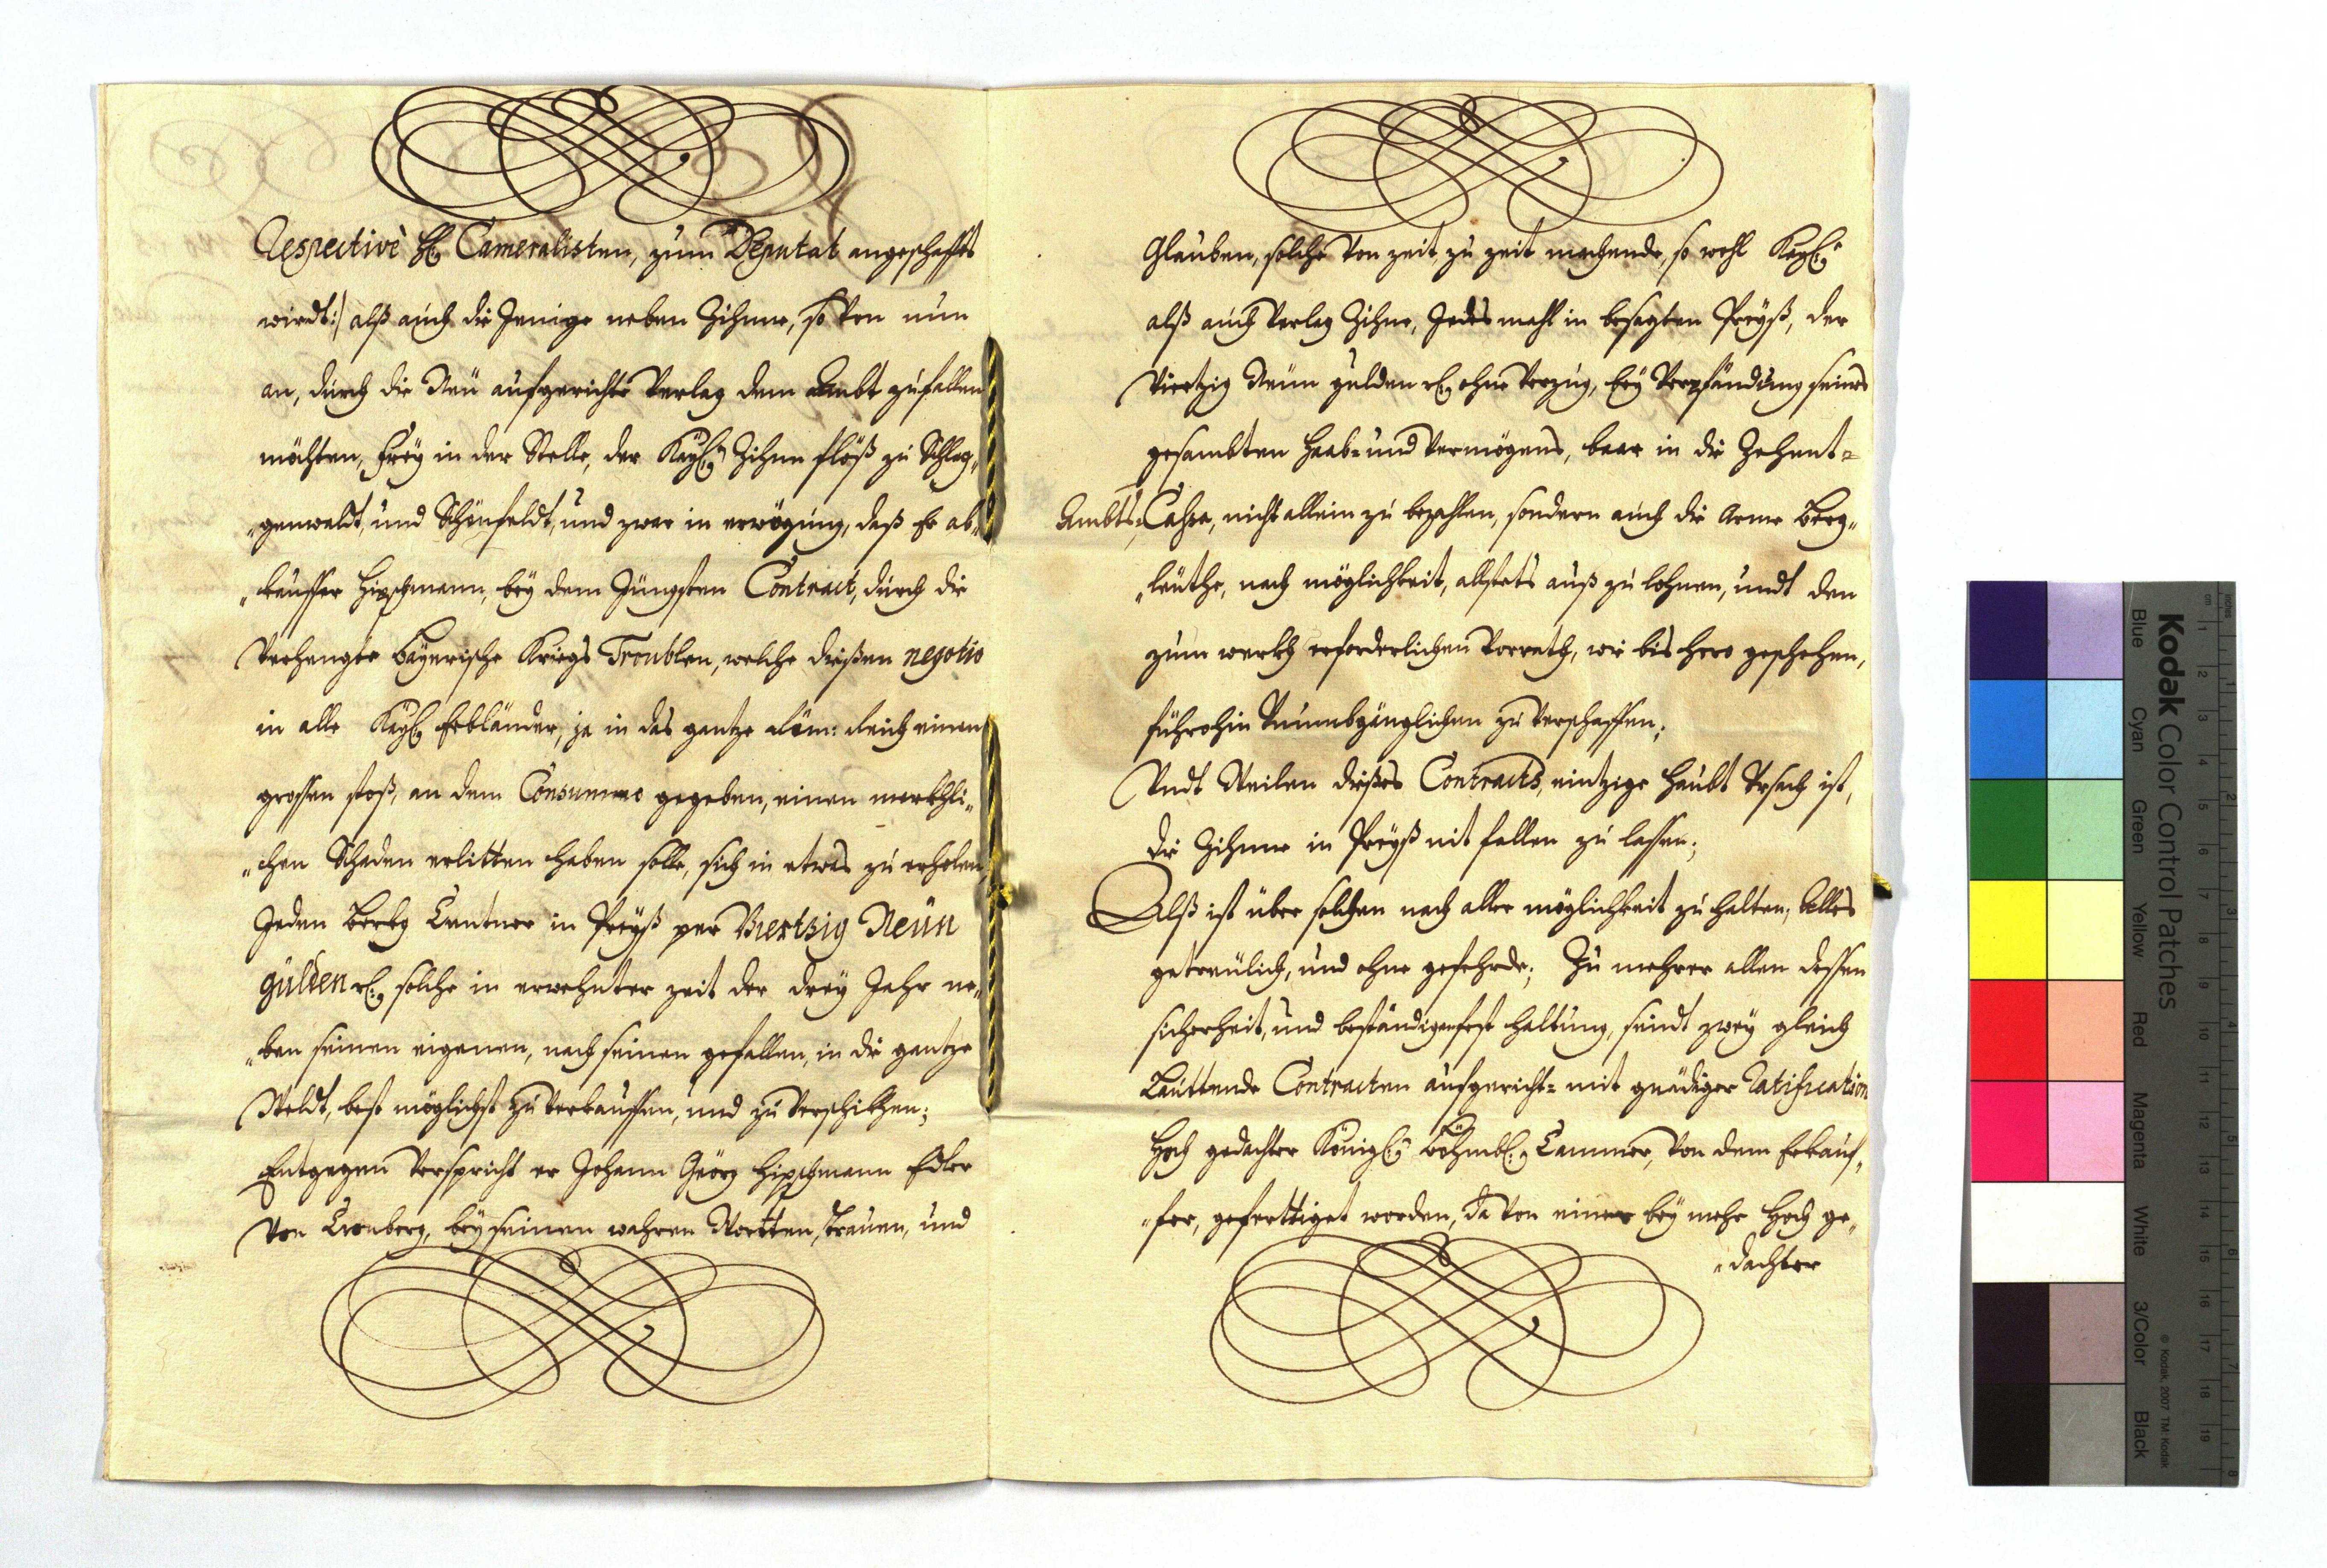 Respectivè H. Cameralisten, zum Deputat angeschafft
wirdt:/ alß auch die Jenige neben Zihnne, so von nun
an, durch die Neü aufgerichte Verlag dem Ambt zufallen
möchten, Frey in der Stelle, der Kayl: Zihnn flöß zu Schlag„
„genwaldt, und Schönfeldt, und zwar in erwögung, daß Er ab„
„kauffer Hipschmann, bey dem Jüngsten Contract, durch die
Verhengte Bayerische Kriegs Troublen, welche dißen negotio
in alle Kayl: Erbländer, ja in das gantze Röm: Reich einen
grossen stoß, an dem Consummo gegeben, einen merkhli„
„chen Schaden erlitten haben solle, sich in etwas zu erholen,
Jeden Berkg Centner in Preyß per Viertzig Neün
gülden rl: solche in erwehnter zeit der drey Jahr ne„
„ben seinen eigenen, nach seinen gefallen, in die gantze
Weldt, best möglichst zu verkauffen, und zu verschikhen;
Entgegen verspricht er Johann Geörg Hipschmann Edler
von Cronberg, bey seinen wahren Wortten, Trauen, und
Glauben, solche von zeit, zu zeit machende, so wohl Kayl:
alß auch Verlag Zihne, Jedes mahl in besagten Preyß, der
Viertzig Neün gulden rl: ohne Verzug, bey Verpfändung seines
gesambten Haab= und Vermögens, baar in die Zehent=
Ambts=Cahsa, nicht allein zu bezahlen, sondern auch die Arme Berg„
„leüthe, nach möglichkeit, allstets auß zu lohnen, undt den
zum werkh erforderlichen Vorrath, wie bis hero geschehen,
führohin Unumbgänglichen zu verschaffen;
Undt Weilen dißes Contracts, eintzige Haubt Ursach ist,
die Zihnne in Preyß nit fallen zu lassen;
Alß ist über solchen nach aller möglichkeit zu halten, Alles
getreülich, und ohne gefehrde; Zu mehrer allen dessen
sicherheit, und beständigenfest haltung, seindt zwey gleich
Lauttende Contracten aufgericht= mit gnädiger Ratification
Hoch gedachter Königl: Böhmbl: Cammer, von dem Erkauf„
„fer, gefertiget worden, da von einer bey mehr Hoch ge„
„dachter
Kodak Color Control Patches
Blue Cyan Green Yellow Red Magenta White 3/Color Black
© Kodak, 2007 TM: Kodak
inches 1 2 3 4 5 6 7 8
cm 1 2 3 4 5 6 7 8 9 10 11 12 13 14 15 16 17 18 19